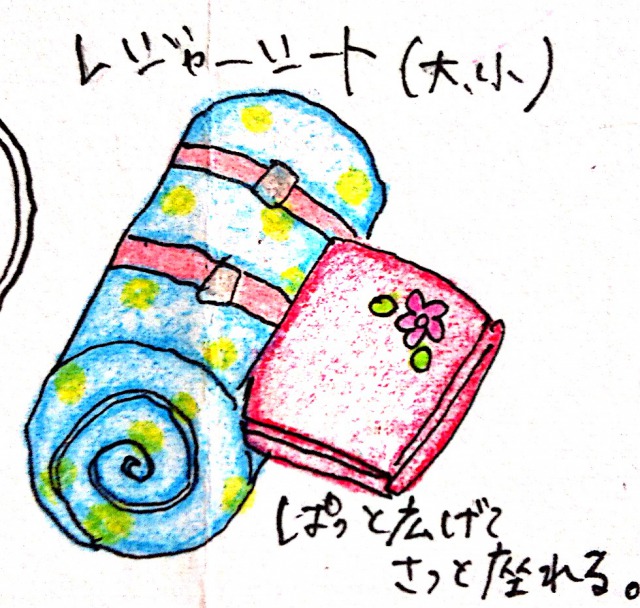 レジャーシート(大、小)
ぱっと広げて
さっと座れる。